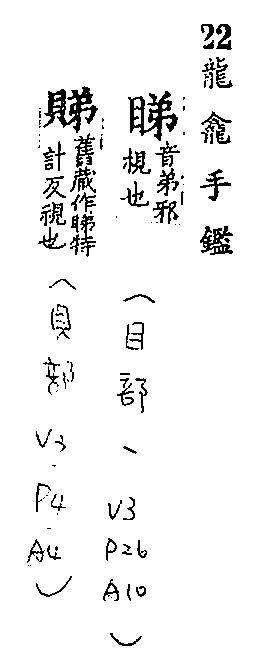 22 龍龕手鑑
睇 音弟邪視也
(目部、V3 P26 A10)
䝨 舊藏作睇特計反視也
(貝部 V3.P4.A4)